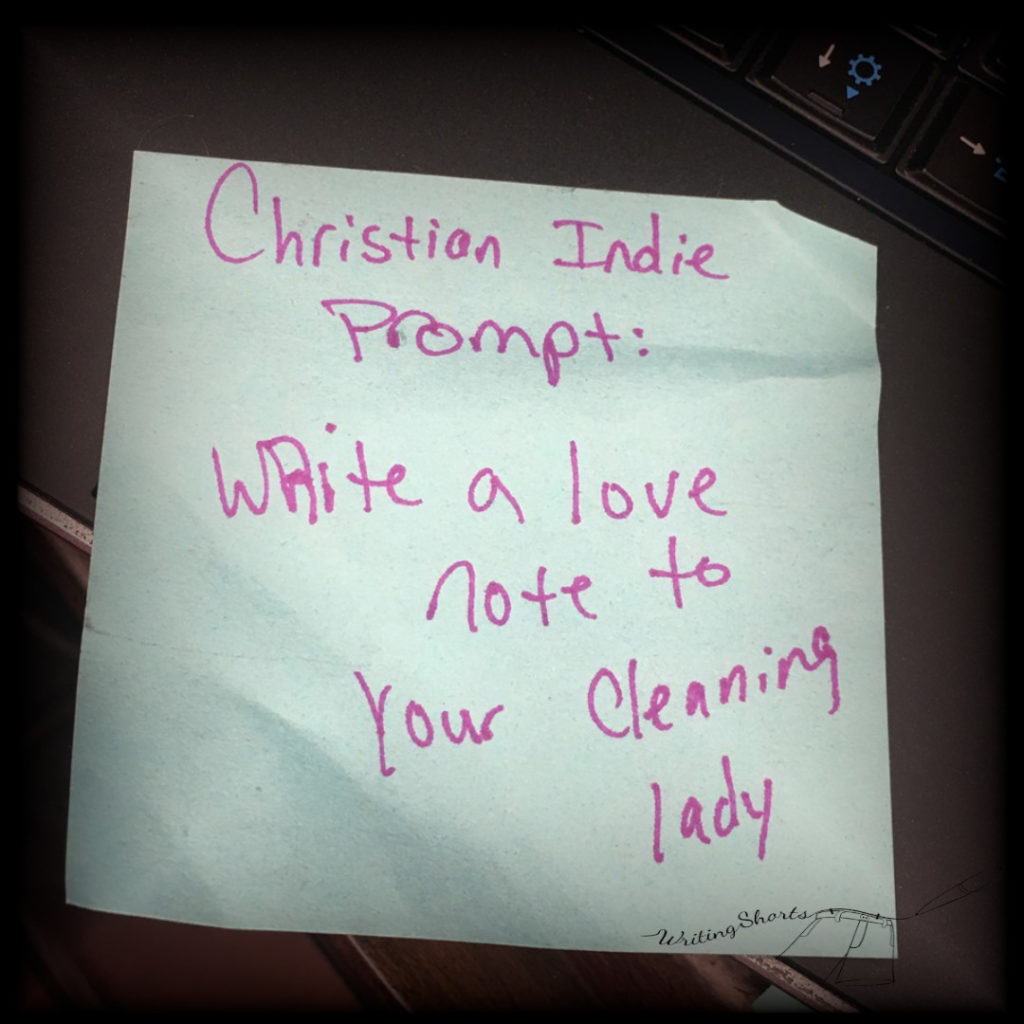 Christian Indie
Prompt:
Write a love
note to
Your Cleaning
lady
WritingShorts